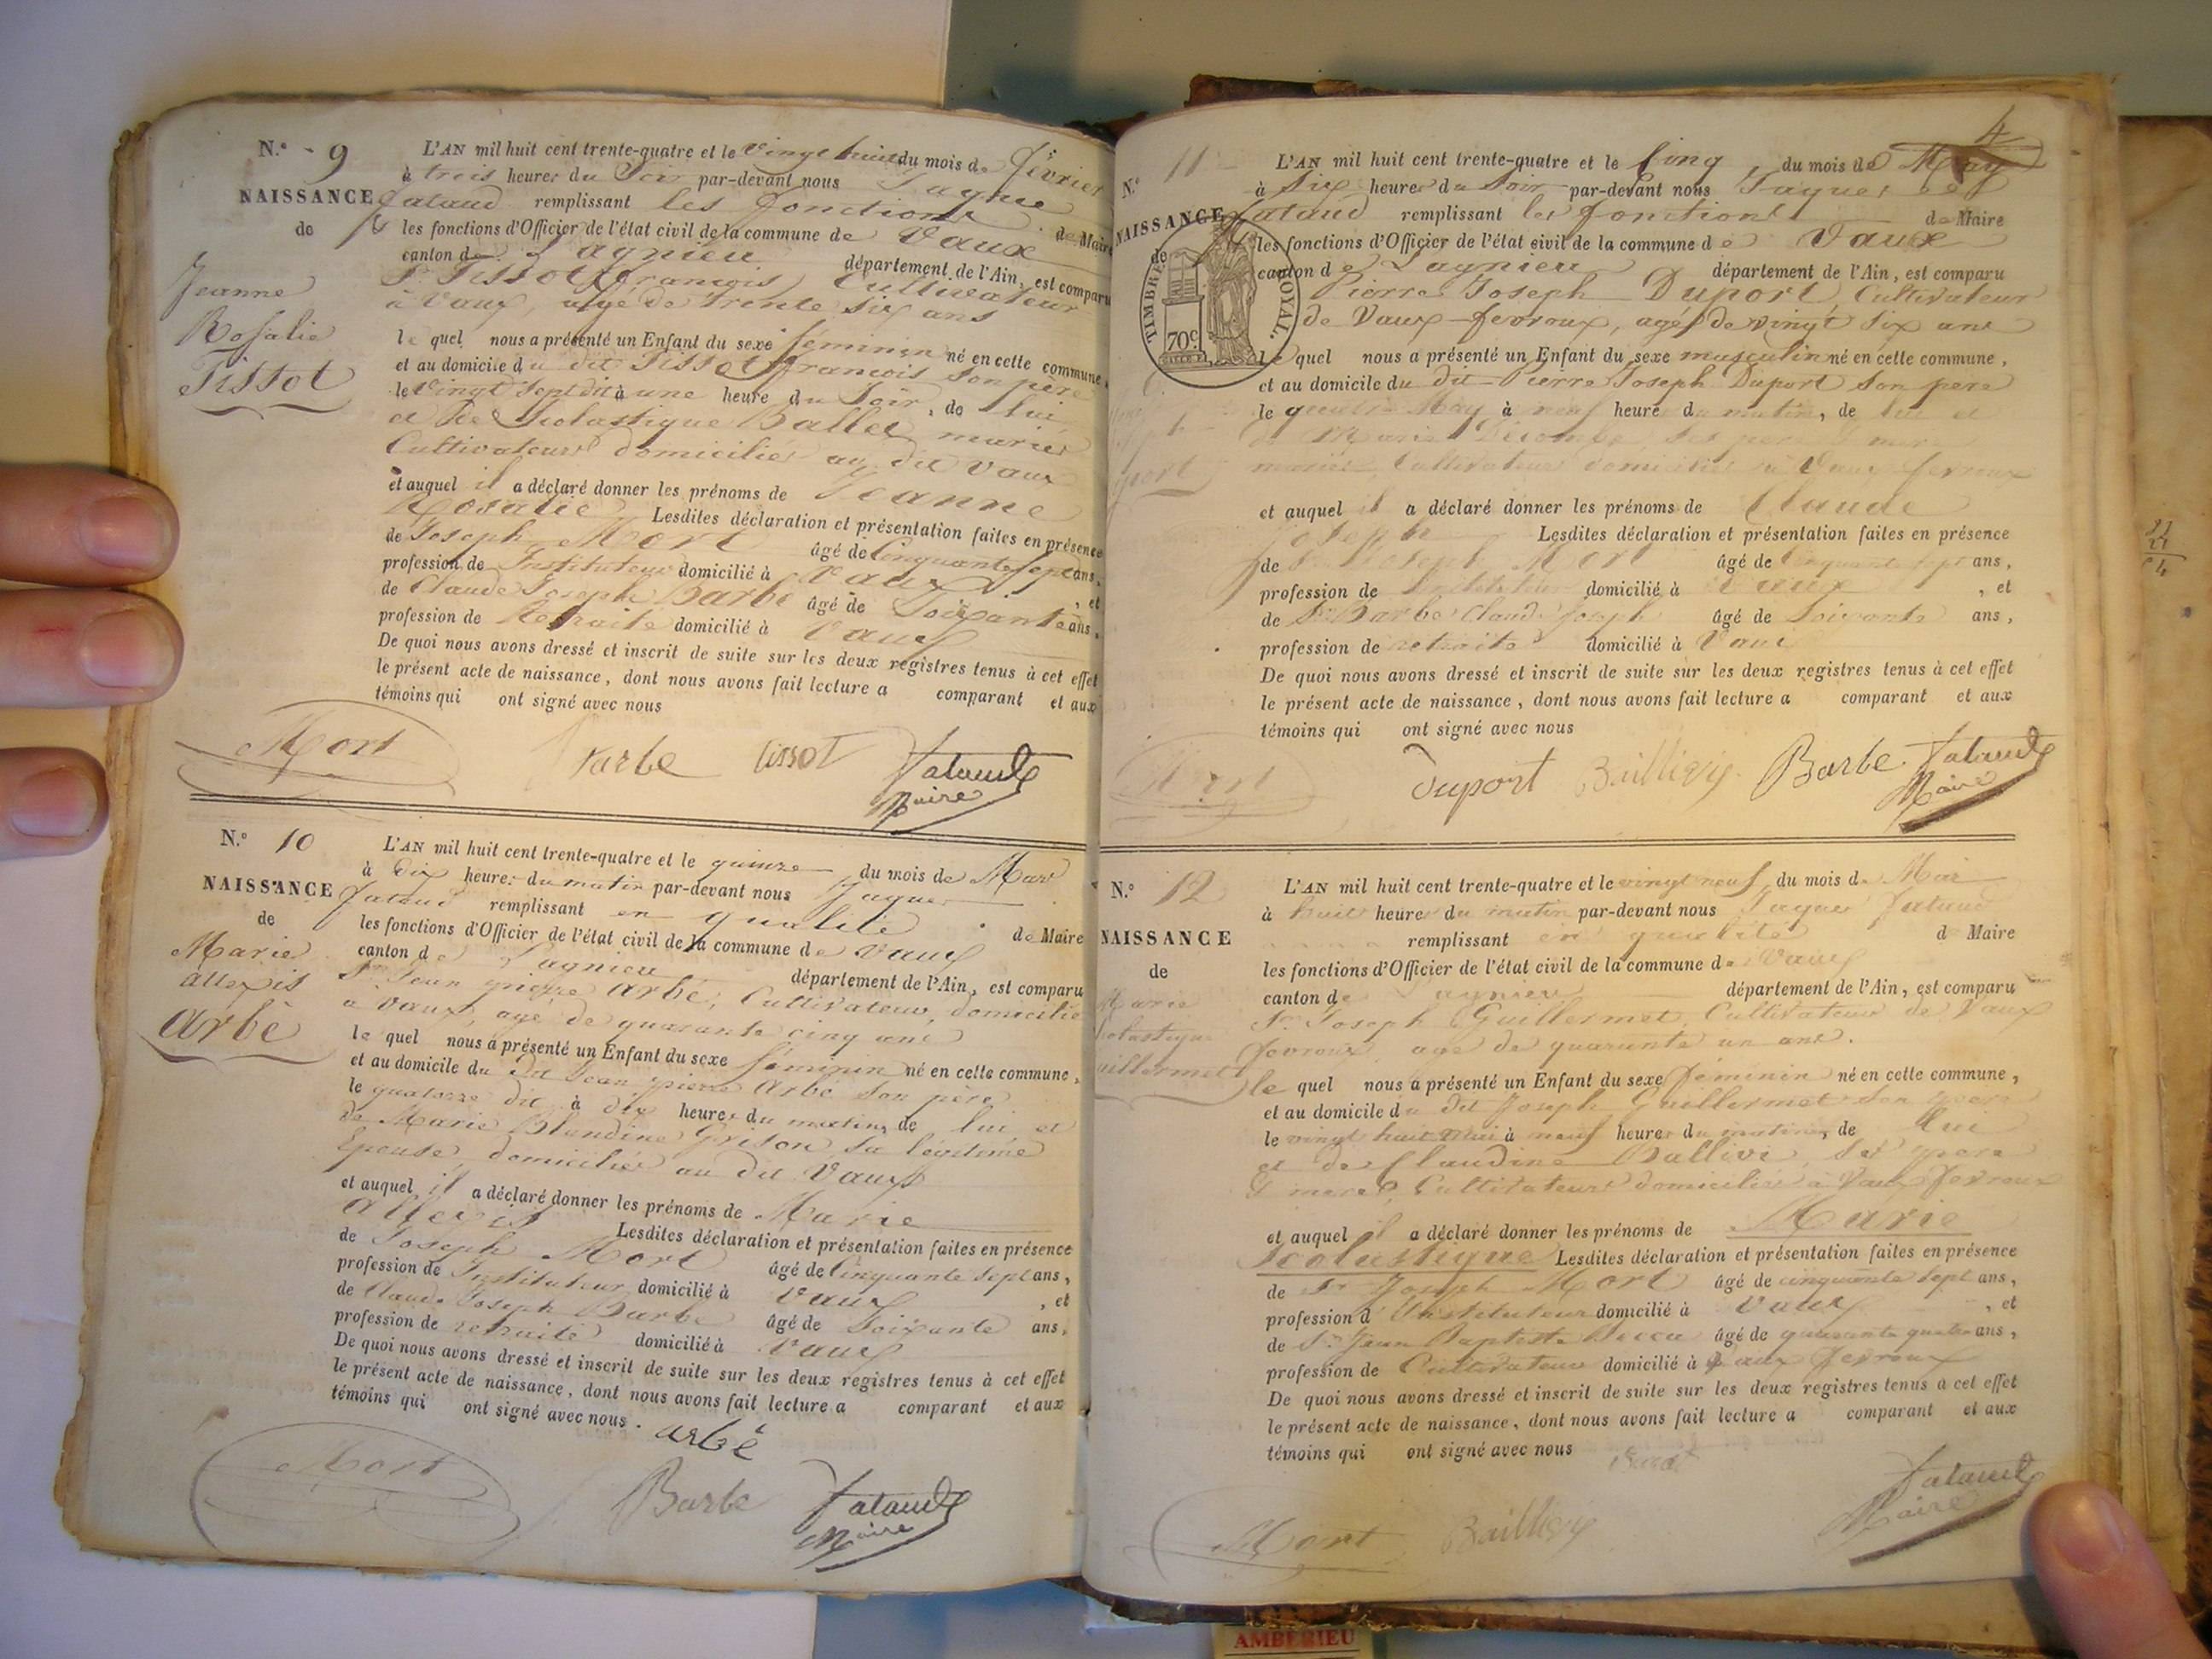 N.º 9
NAISSANCE
de
Jeanne
Rosalie
Tissot
L'AN mil huit cent trente-quatre et le vingt huit du mois de février
à trois heures du Soir par-devant nous Jaque
fataud remplissant les fonctions de Maire
les fonctions d'Officier de l'état civil de la commune de Vaux
canton de Lagnieu département de l'Ain, est comparu
Sr. Tissot francois Cultivateur
à Vaux, age de trente six ans
le quel nous a présenté un Enfant du sexe féminin né en cette commune,
et au domicile du dit Tissot francois son père
le vingt sept dit à une heure du Soir, de lui
et de Scolastique Ballet mariés
Cultivateurs domiciliés au dit Vaux
et auquel il a déclaré donner les prénoms de Jeanne
Rosalie Lesdites déclaration et présentation faites en présence
de Joseph Mort âgé de Cinquante Sept ans,
profession de Instituteur domicilié à Vaux, et
de Claude Joseph Barbe âgé de Soixante ans,
profession de Retraite domicilié à Vaux
De quoi nous avons dressé et inscrit de suite sur les deux registres tenus à cet effet
le présent acte de naissance, dont nous avons fait lecture a comparant et aux
témoins qui ont signé avec nous
Mort Barbe tissot fataud
Maire
N.º 10
NAISSANCE
de
Marie
allexis
Arbé
L'AN mil huit cent trente-quatre et le quinze du mois de Mars
à dix heures du matin par-devant nous Jaques
fataud remplissant en qualité de Maire
les fonctions d'Officier de l'état civil de la commune de Vaux
canton de Lagnieu département de l'Ain, est comparu
Sr. Jean pierre Arbé, Cultivateur, domicilié
a Vaux, agé de quarante cinq ans
le quel nous a présenté un Enfant du sexe féminin né en cette commune,
et au domicile du dit Jean pierre Arbé son père
le quatorze dit à dix heures du matin, de lui et
de Marie Blandine Grison sa légitime
Epouse, domiciliés au dit Vaux
et auquel il a déclaré donner les prénoms de Marie
Allexis Lesdites déclaration et présentation faites en présence
de Joseph Mort âgé de Cinquante Sept ans,
profession de Instituteur domicilié à Vaux, et
de Claude Joseph Barbe âgé de Soixante ans,
profession de retraité domicilié à Vaux
De quoi nous avons dressé et inscrit de suite sur les deux registres tenus à cet effet
le présent acte de naissance, dont nous avons fait lecture a comparant et aux
témoins qui ont signé avec nous. arbé
Mort Barbe fataud
Maire
4
N.º 11
NAISSANCE
de
TIMBRE ROYAL.
70c.
L'AN mil huit cent trente-quatre et le Cinq du mois de May
à Six heures du Soir par-devant nous Jaques
fataud remplissant les fonctions de Maire
les fonctions d'Officier de l'état civil de la commune de Vaux
canton de Lagnieu département de l'Ain, est comparu
Pierre Joseph Duport, Cultivateur
de Vaux-fevroux, agé de vingt six ans
le quel nous a présenté un Enfant du sexe masculin né en cette commune,
et au domicile du dit Pierre Joseph Duport son père
le May à neuf heure du matin, de lui et
de Marie ses père mere
mariés Cultivateurs domiciliés à Vaux fevroux
et auquel il a déclaré donner les prénoms de Claude
Joseph Lesdites déclaration et présentation faites en présence
de Sr. Joseph Mort âgé de Cinquante sept ans,
profession de Instituteur domicilié à Vaux, et
de Sr. Barbe Claude Joseph âgé de Soixante ans,
profession de retraite domicilié à Vaux
De quoi nous avons dressé et inscrit de suite sur les deux registres tenus à cet effet
le présent acte de naissance, dont nous avons fait lecture a comparant et aux
témoins qui ont signé avec nous
Mort Duport Bailligy Barbe fataud
Maire
N.º 12
NAISSANCE
de
Marie
L'AN mil huit cent trente-quatre et le vingt neuf du mois de Mai
à huit heures du matin par-devant nous Jaques fataud
remplissant en qualité d Maire
les fonctions d'Officier de l'état civil de la commune de Vaux
canton de Lagnieu département de l'Ain, est comparu
Sr. Joseph Guillermet, Cultivateur de Vaux
fevroux age de quarante un ans.
le quel nous a présenté un Enfant du sexe féminin né en cette commune,
et au domicile du dit Joseph Guillermet son pere
le vingt huit Mai à neuf heures du matin, de lui
et de Claudine Ballivi, ses pere
& mere, Cultivateurs domiciliés à Vaux fevroux
et auquel il a déclaré donner les prénoms de Marie
Scolastique Lesdites déclaration et présentation faites en présence
de Sr. Joseph Mort âgé de cinquante sept ans,
profession d Instituteur domicilié à Vaux, et
de Sr. Jean Baptiste âgé de quarante quatre ans,
profession de Cultivateur domicilié à Vaux fevroux
De quoi nous avons dressé et inscrit de suite sur les deux registres tenus à cet effet
le présent acte de naissance, dont nous avons fait lecture a comparant et aux
témoins qui ont signé avec nous
Mort Bailligy fataud
Maire
AMBERIEU